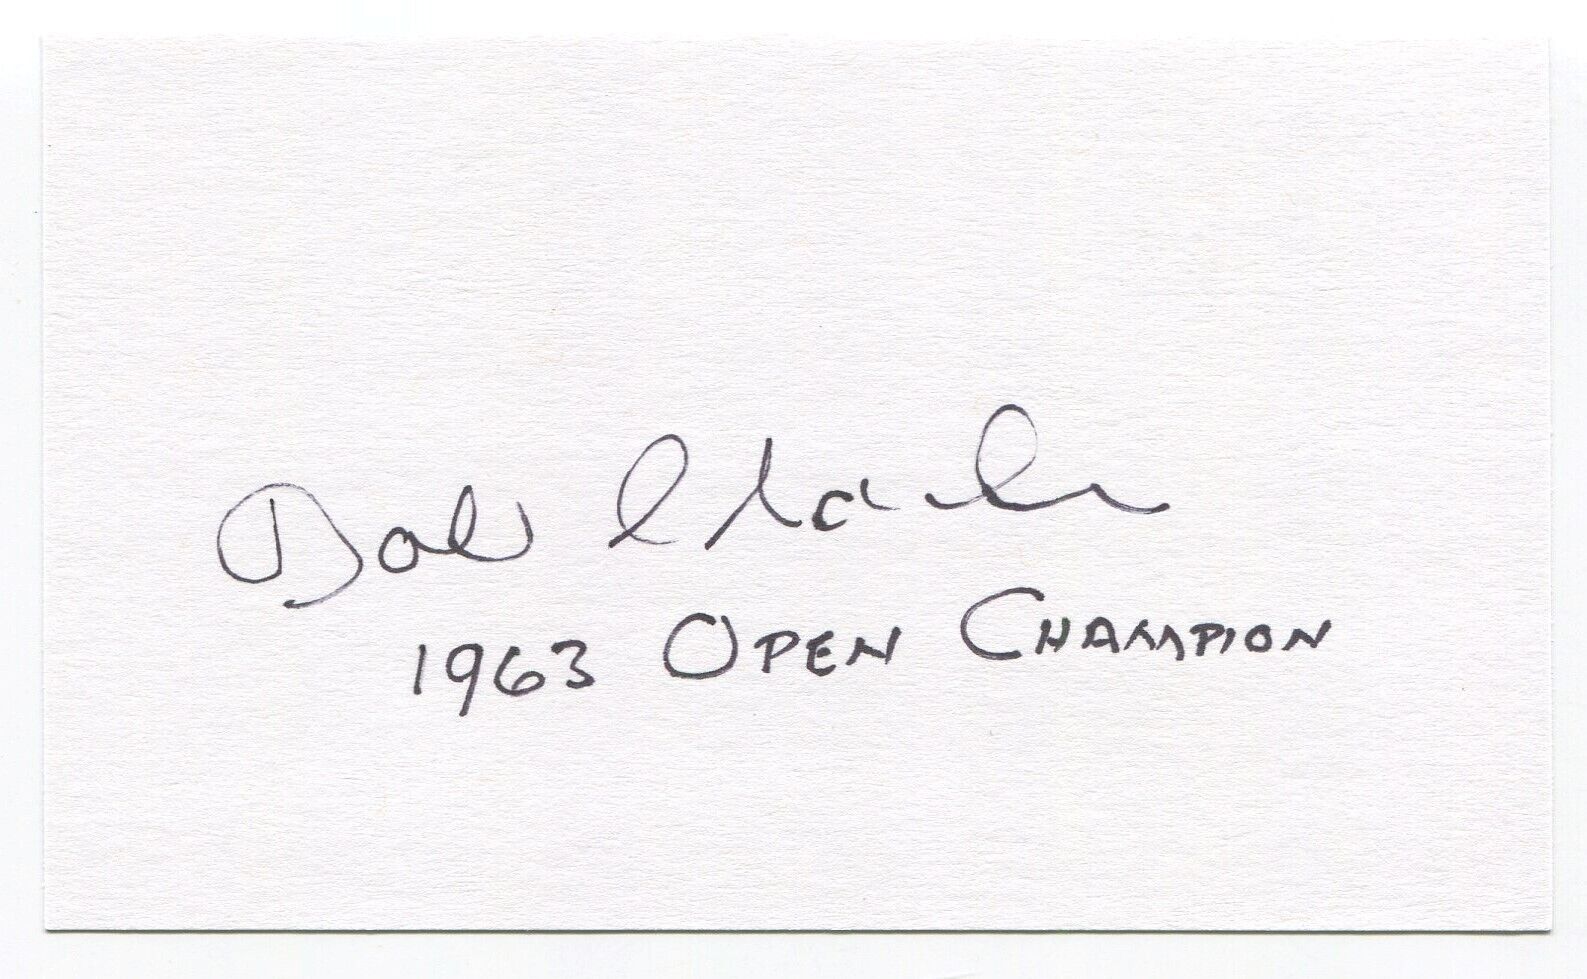 Bob Charles
1963 OPEN CHAMPION